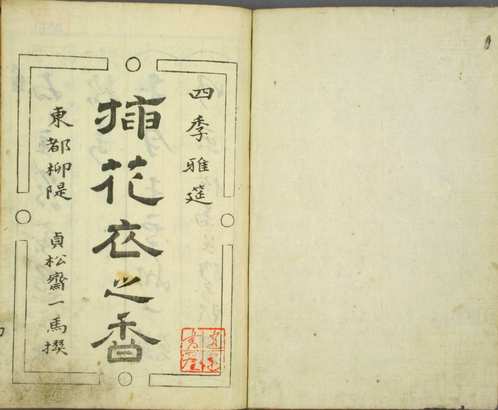 四季雅筵
挿花衣之香
東都柳隄 貞松齋一馬撰